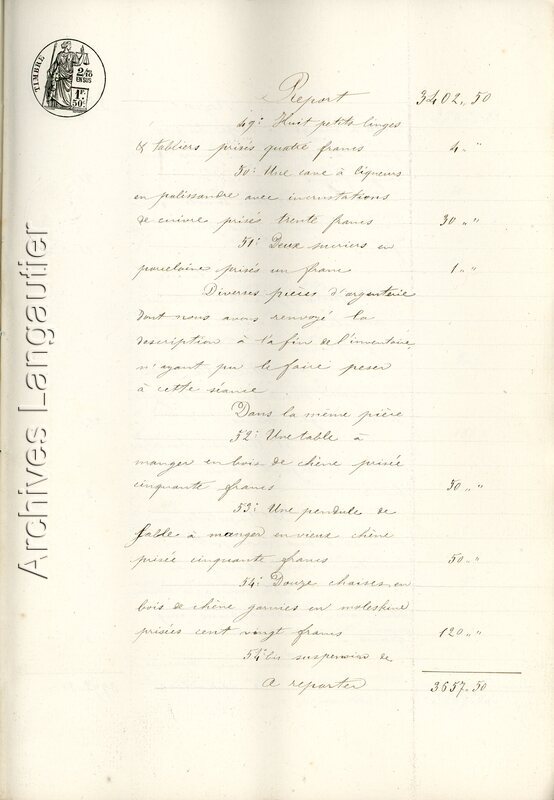 TIMBRE
2/10
EN SUS
1F
50c
Report 3402,, 50
49° Huit petits linges
& tabliers prisés quatre francs 4 ,, "
50° Une cave à liqueurs
en palissandre avec incrustations
de cuivre prisée trente francs 30 ,, "
51° Deux sucriers en
porcelaine prisés un franc 1 ,, "
Diverses pièces d'argenterie
dont nous avons renvoyé la
description à la fin de l'inventaire,
n'ayant pu le faire peser
à cette séance
Dans la même pièce
52° Une table à
manger en bois de chêne prisée
cinquante francs 50 ,, "
53° Une pendule de
table à manger en vieux chêne
prisée cinquante francs 50 ,, "
54° Douze chaises en
bois de chêne garnies en moleskine
prisées cent vingt francs 120 ,, "
54 bis suspension de
A reporter 3657.50
Archives Langautier